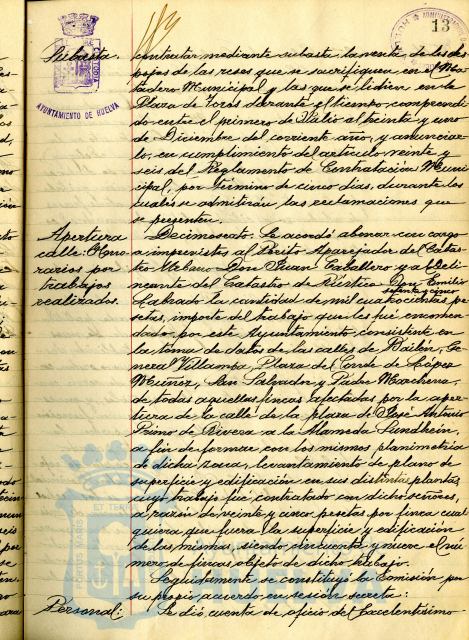 13
AYUNTAMIENTO DE HUELVA
Subasta.
contratar mediante subasta la venta de los des-
pojos de las reses que se sacrifiquen en el Ma-
tadero Municipal y las que se lidien en la
Plaza de Toros durante el tiempo comprendi-
do entre el primero de Julio al treinta y uno
de Diciembre del corriente año, y anunciar-
lo, en cumplimiento del artículo veinte y
seis del Reglamento de Contratación Muni-
cipal, por término de cinco días, durante los
cuales se admitirán las reclamaciones que
se presenten.
Apertura
calle. Hono-
rarios por
trabajos
realizados.
Decimosexto. Se acordó abonar con cargo
a imprevistos al Perito Aparejador del Catas-
tro Urbano Don Juan Caballero y al Deli-
neante del Catastro de Rústica Don Emilio
Labrado la cantidad de mil cuatrocientas
setenta y cinco pe-
setas, importe del trabajo que les fué encomen-
dado, por este Ayuntamiento, consistente en
la toma de datos de las calles de Bailén, Ge-
neral Villampa, Plaza del Conde de López
Muñoz, San Salvador y Padre Marchena,
de todas aquellas fincas afectadas por la aper-
tura de la calle de la plaza de José Antonio
Primo de Rivera a la Alameda Sundheim,
a fin de formar con los mismos planimetría
de dicha zona, levantamiento de plano de
superficie y edificación en sus distintas plantas,
cuyo trabajo fué contratado con dichos señores,
a razón de veinte y cinco pesetas por finca cual-
quiera que fuera la superficie y edificación
de las mismas, siendo cincuenta y nueve el nú-
mero de fincas objeto de dicho trabajo.
Seguidamente se constituyó la Comisión por
su propio acuerdo en sesión secreta:
Personal:
Se dió cuenta de oficio del Excelentísimo